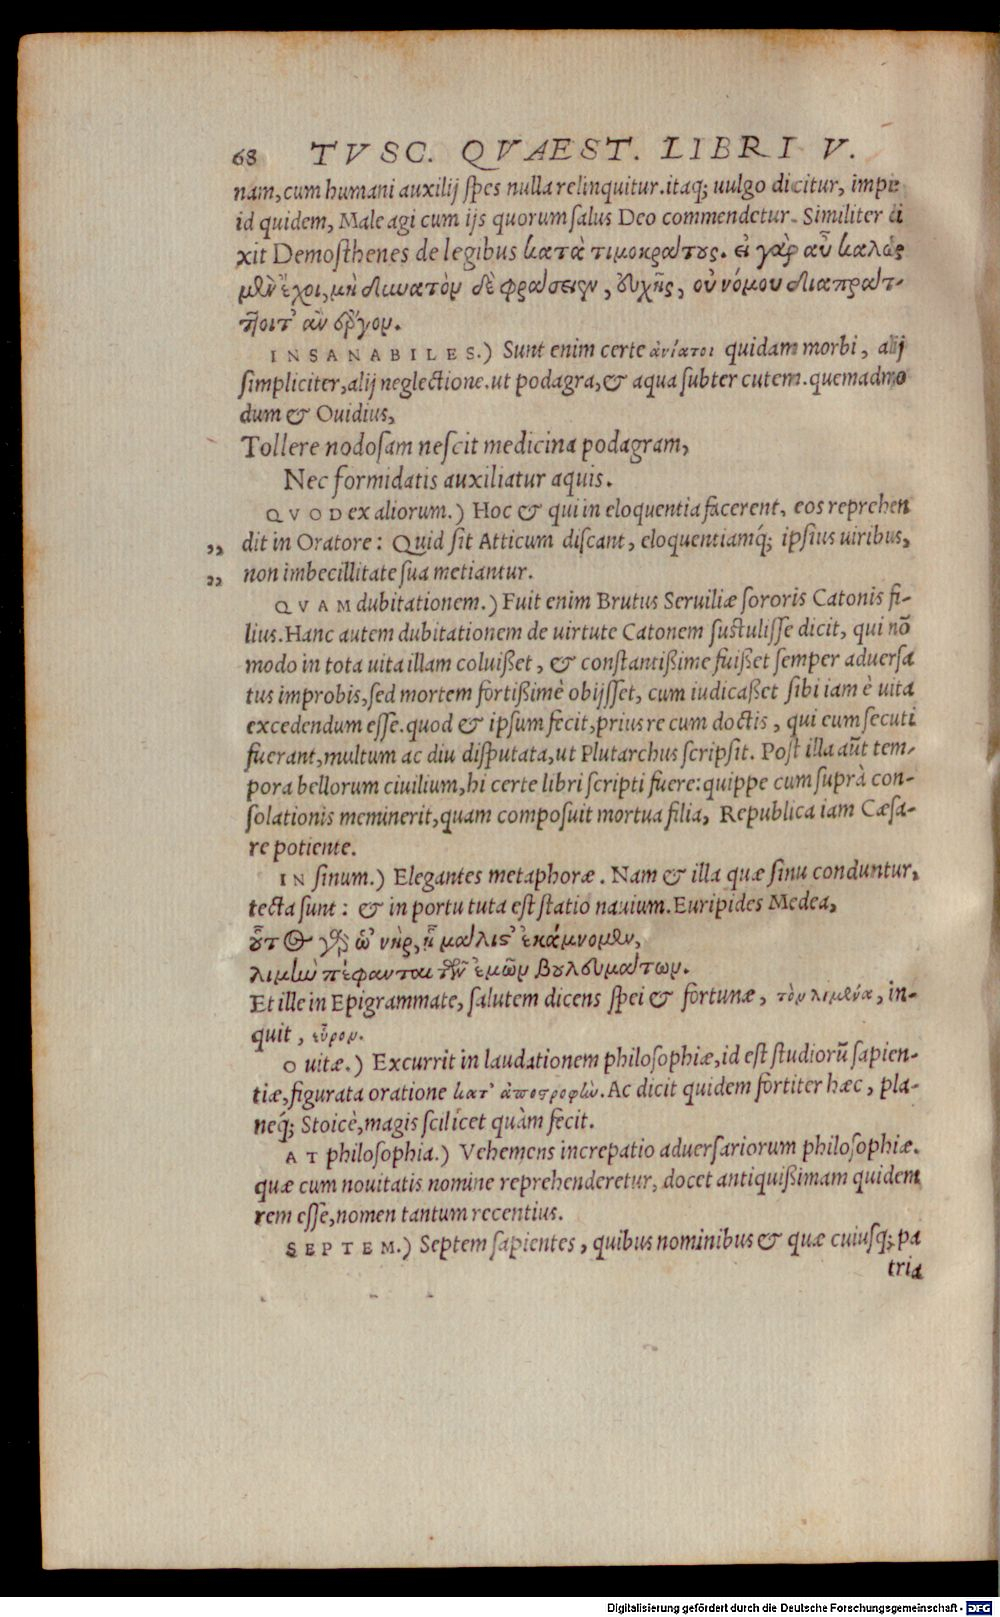 68 TVSC. QVAEST. LIBRI V.
nam, cum humani auxilij spes nulla relinquitur. itaq; uulgo dicitur, impie
id quidem, Male agi cum ijs quorum salus Deo commendetur. Similiter di
xit Demosthenes de legibus κατὰ τιμοκράτους. εἰ γὰρ αὖ καλῶς
μὲν ἔχοι, μὴ δυνατὸν δὲ φράσειεν, εὐχῆς, οὐ νόμου διαπράτ-
τοιτ᾽ ἂν ἔργον.
INSANABILES.) Sunt enim certe ἀνίατοι quidam morbi, alij
simpliciter, alij neglectione. ut podagra, & aqua subter cutem. quemadmo
dum & Ouidius,
Tollere nodosam nescit medicina podagram,
Nec formidatis auxiliatur aquis.
QVOD ex aliorum.) Hoc & qui in eloquentia facerent, eos reprehen
„ dit in Oratore: Quid sit Atticum discant, eloquentiamq́; ipsius uiribus,
„ non imbecillitate sua metiantur.
QVAM dubitationem.) Fuit enim Brutus Seruiliæ sororis Catonis fi-
lius. Hanc autem dubitationem de uirtute Catonem sustulisse dicit, qui nō
modo in tota uita illam coluißet, & constantißime fuißet semper aduersa
tus improbis, sed mortem fortißimè obijsset, cum iudicaßet sibi iam è uita
excedendum esse. quod & ipsum fecit, prius re cum doctis, qui eum secuti
fuerant, multum ac diu disputata, ut Plutarchus scripsit. Post illa aūt tem-
pora bellorum ciuilium, hi certe libri scripti fuere: quippe cum suprà con-
solationis meminerit, quam composuit mortua filia, Republica iam Cæsa-
re potiente.
IN sinum.) Elegantes metaphoræ. Nam & illa quæ sinu conduntur,
tecta sunt: & in portu tuta est statio nauium. Euripides Medea,
οὗτος γὰρ ὡ᾽ νὴρ, ᾗ μάλιστ᾽ ἐκάμνομεν,
λιμὴν πέφανται τῶν ἐμῶν βουλευμάτων.
Et ille in Epigrammate, salutem dicens spei & fortunæ, τὸν λιμένα, in-
quit, εὗρον.
O uitæ.) Excurrit in laudationem philosophiæ, id est studiorū sapien-
tiæ, figurata oratione κατ᾽ ἀποστροφὼ. Ac dicit quidem fortiter hæc, pla-
neq́; Stoicè, magis scilicet quàm fecit.
AT philosophia.) Vehemens increpatio aduersariorum philosophiæ.
quæ cum nouitatis nomine reprehenderetur, docet antiquißimam quidem
rem esse, nomen tantum recentius.
SEPTEM.) Septem sapientes, quibus nominibus & quæ cuiusq; pa
tria
Digitalisierung gefördert durch die Deutsche Forschungsgemeinschaft - DFG